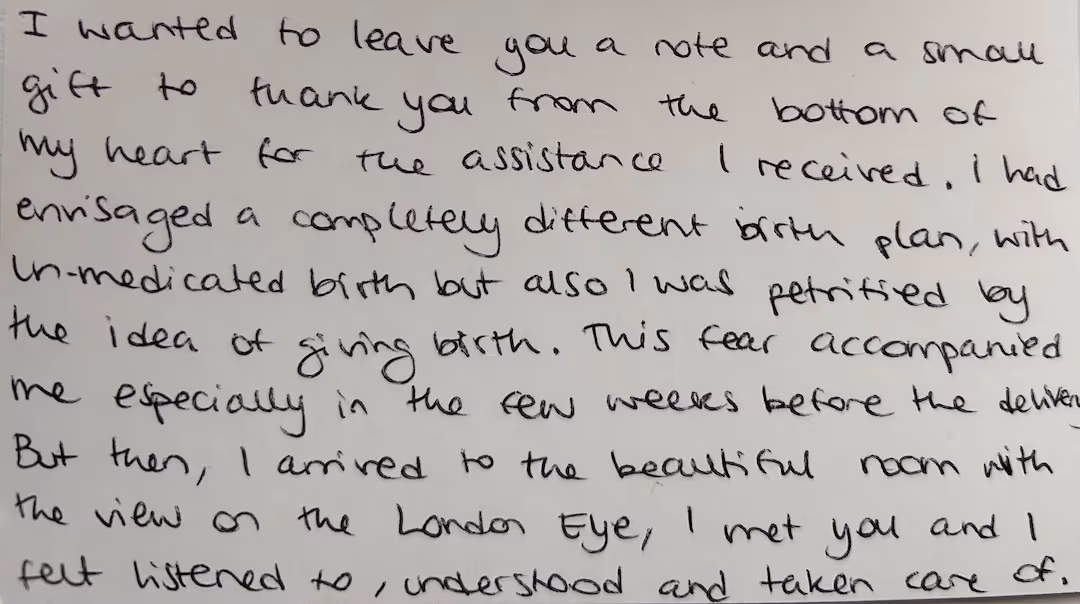 I wanted to leave you a note and a small
gift to thank you from the bottom of
my heart for the assistance I received. I had
envisaged a completely different birth plan, with
un-medicated birth but also I was petrified by
the idea of giving birth. This fear accompanied
me especially in the few weeks before the delivery
But then, I arrived to the beautiful room with
the view on the London Eye, I met you and I
felt listened to, understood and taken care of.